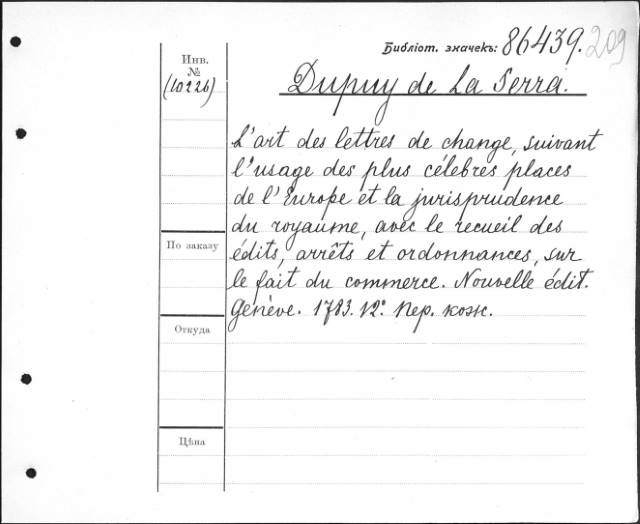 Библіот. значекъ: 86439. 209
Инв.
№
(10226)
Dupuy de La Serra.
L'art des lettres de change, suivant
l'usage des plus célèbres places
de l'Europe et la jurisprudence
du royaume, avec le recueil des
édits, arrêts et ordonnances, sur
le fait du commerce. Nouvelle édit.
Genève. 1783. 12°. Пер. кож.
По заказу
Откуда
Цѣна